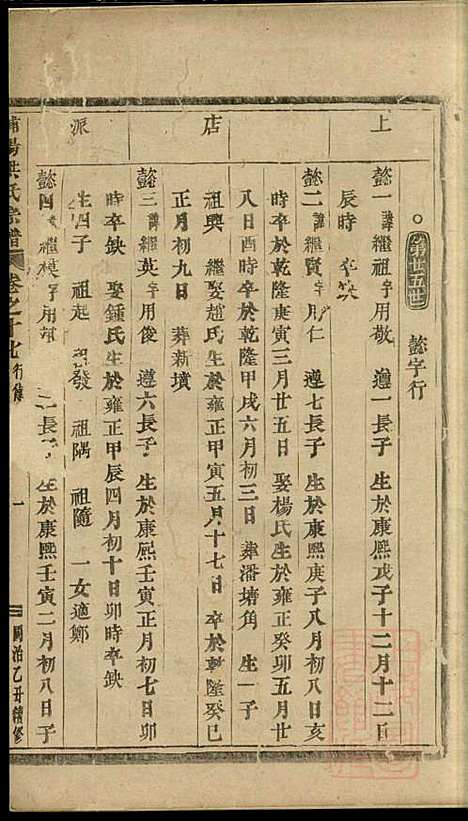 上
店
派
第廿五世 懿字行
懿一諱繼祖字用敬 遵一長子 生於康熙戊子十二月十二日
辰時 卒缺
懿二諱繼賢字用仁 遵七長子 生於康熙庚子八月初八日亥
時卒於乾隆庚寅三月廿五日 娶楊氏生於雍正癸卯五月廿
八日酉時卒於乾隆甲戌六月初三日 葬潘塘角 生一子
祖興 繼娶趙氏生於雍正甲寅五月十七日 卒於乾隆癸巳
正月初九日 葬新墳
懿三諱繼英字用俊 遵六長子 生於康熙壬寅正月初七日卯
時卒缺 娶鍾氏生於雍正甲辰四月初十日卯時卒缺
生四子 祖起 祖發 祖隅 祖隨 一女適鄭
懿四 繼 字用 長子 生於康熙壬寅二月初八日子
陽洪氏宗譜 卷之十七 行傳 一 同治乙丑續修